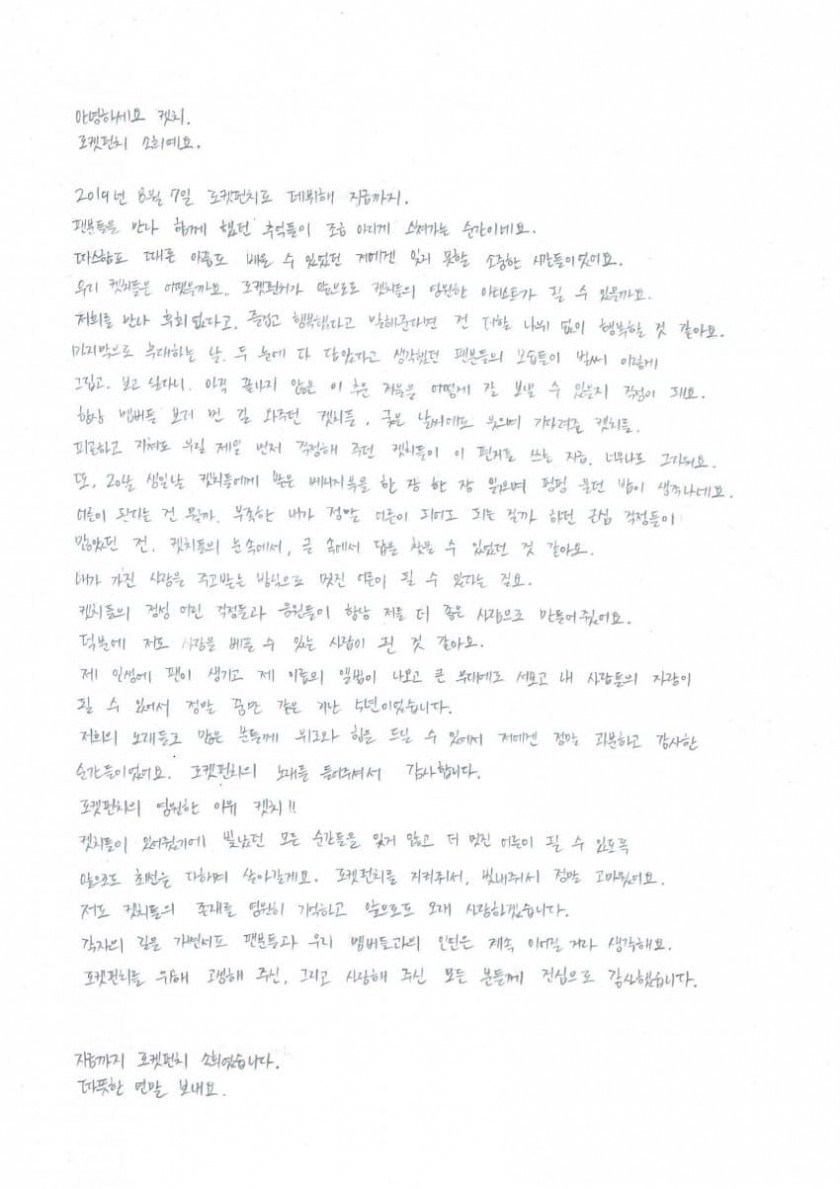 안녕하세요 켓치.
로켓펀치 소희예요.
2019년 8월 7일 로켓펀치로 데뷔해 지금까지.
팬분들을 만나 함께 했던 추억들이 조심 아리게 스쳐가는 순간이네요.
따스함도 때론 아픔도 배울 수 있었던 저에겐 잊지 못할 소중한 시간들이었어요.
우리 켓치들은 어땠을까요. 로켓펀치가 앞으로도 켓치들의 영원한 아티스트가 될 수 있을까요.
저희를 만나 후회 없다고, 즐겁고 행복했다고 말해준다면 전 더할 나위 없이 행복할 것 같아요.
마지막으로 무대하는 날. 두 눈에 다 담았다고 생각했던 팬분들의 모습들이 벌써 이렇게
그립고. 보고 싶다니. 아직 끝나지 않은 이 추운 겨울을 어떻게 잘 보낼 수 있을지 걱정이 돼요.
항상 멤버들 보러 먼 길 와주던 켓치들, 궂은 날씨에도 웃으며 기다려준 켓치들.
피곤하고 지쳐도 우릴 제일 먼저 걱정해 주던 켓치들이 이 편지를 쓰는 지금. 너무나도 그리워요.
또, 20살 생일날 켓치들에게 받은 메시지북을 한 장 한 장 읽으며 펑펑 울던 밤이 생각나네요.
어른이 된다는 건 뭘까. 부족한 내가 정말 어른이 되어도 되는 걸까 하던 근심 걱정들이
많았던 전. 켓치들의 눈 속에서, 글 속에서 답을 찾을 수 있었던 것 같아요.
내가 가진 사랑을 주고받는 방식으로 멋진 어른이 될 수 있다는 걸요.
켓치들의 정성 어린 걱정들과 응원들이 항상 저를 더 좋은 사람으로 만들어 줬어요.
덕분에 저도 사랑을 베풀 수 있는 사람이 된 것 같아요.
제 인생에 팬이 생기고 제 이름의 앨범이 나오고 큰 무대에도 서보고 내 사람들의 자랑이
될 수 있어서 정말 꿈만 같은 지난 5년이었습니다.
저희의 노래들로 많은 분들께 위로와 힘을 드릴 수 있어서 저에겐 정말 과분하고 감사한
순간들이었어요. 로켓펀치의 노래를 들어주셔서 감사합니다.
로켓펀치의 영원한 이유 켓치!!
켓치들이 있어줬기에 빛났던 모든 순간들을 잊지 않고 더 멋진 어른이 될 수 있도록
앞으로도 최선을 다하며 살아갈게요. 로켓펀치를 지켜줘서, 빛내줘서 정말 고마웠어요.
저도 켓치들의 존재를 영원히 기억하고 앞으로도 오래 사랑하겠습니다.
각자의 길을 가면서도 팬분들과 우리 멤버들과의 인연은 계속 이어질 거라 생각해요.
로켓펀치를 위해 고생해 주신, 그리고 사랑해 주신 모든 분들께 진심으로 감사했습니다.
지금까지 로켓펀치 소희였습니다.
따뜻한 연말 보내요.